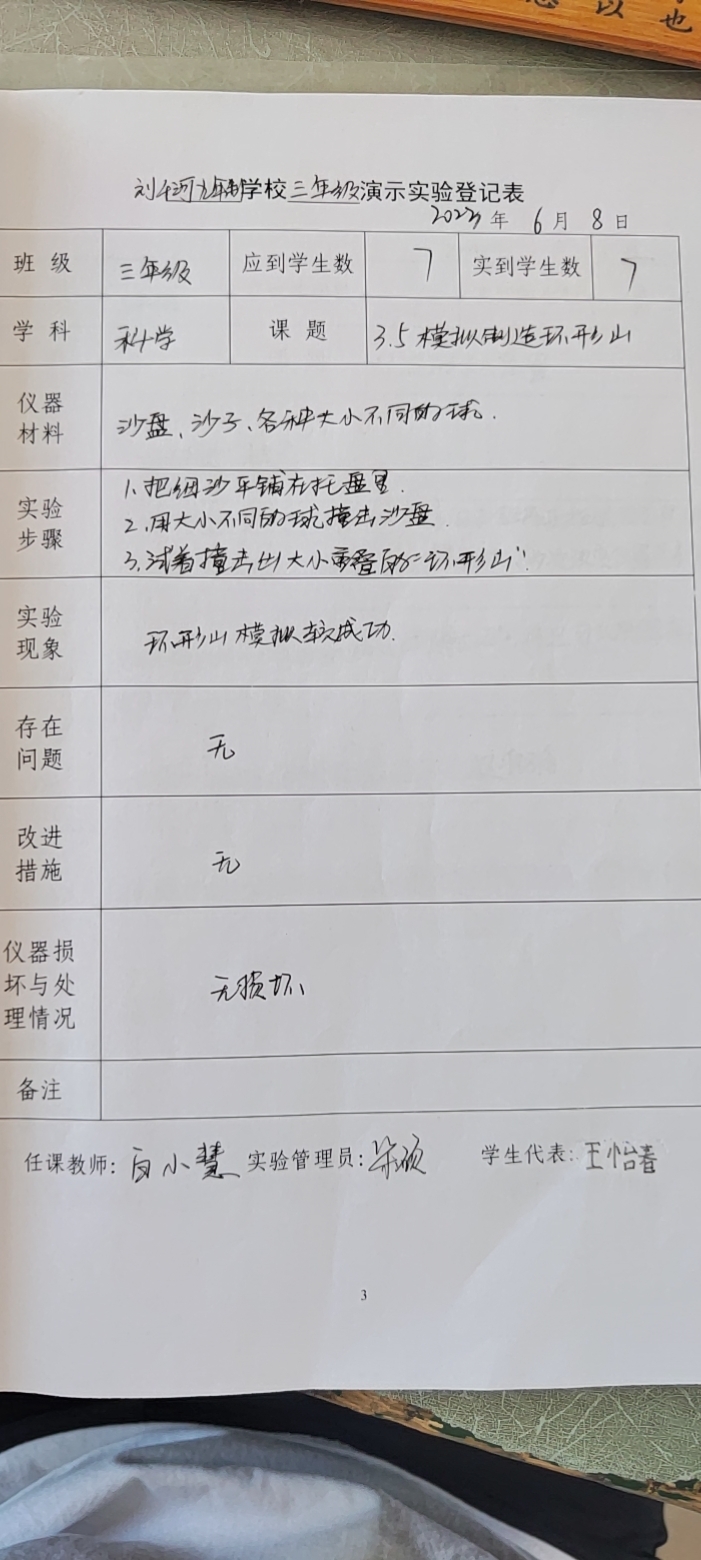 以 也
刘千河九年制学校三年级演示实验登记表
2023 年 6 月 8 日
班 级 三年级 应到学生数 7 实到学生数 7
学 科 科学 课 题 3.5 模拟制造环形山
仪器
材料
沙盘、沙子、各种大小不同的球.
实验
步骤
1.把细沙平铺在托盘里.
2.用大小不同的球撞击沙盘.
3.试着撞击出大小重叠的“环形山”.
实验
现象
环形山模拟较成功.
存在
问题
无
改进
措施
无
仪器损
坏与处
理情况
无损坏
备注
任课教师: 白小慧 实验管理员: 学生代表: 王怡春
3